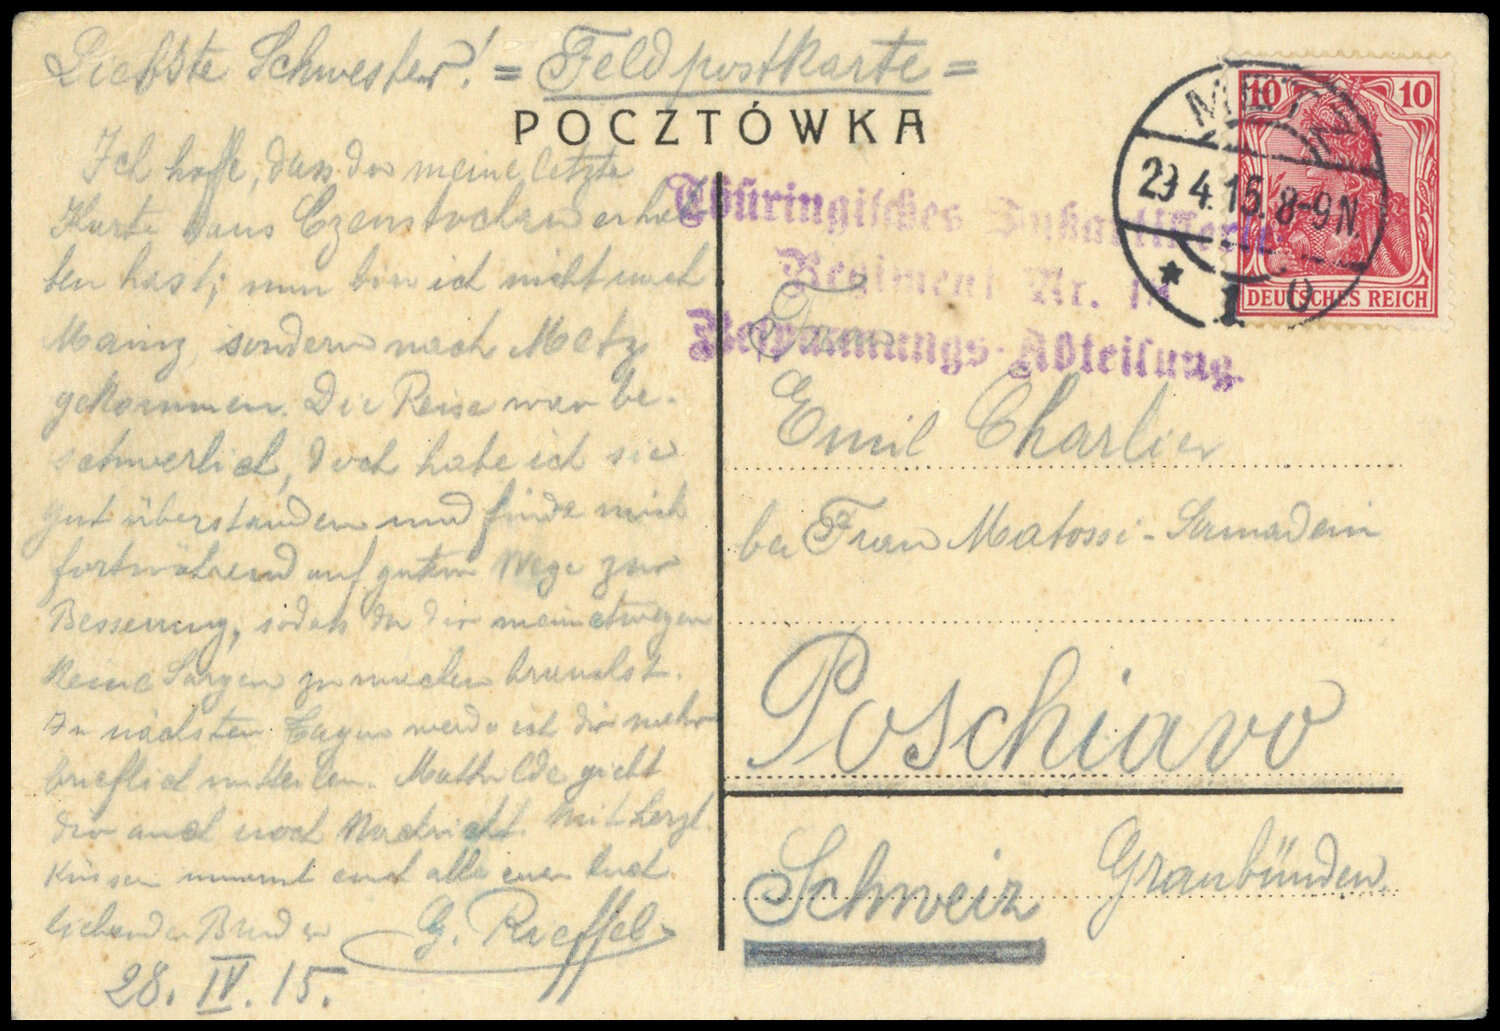 Liebste Schwester! = Feldpostkarte =
POCZTÓWKA
Ich hoffe, dass du meine letzte
Karte aus Czenstochau erhal
ten hast; nun bin ich nicht nach
Mainz, sondern nach Metz
gekommen. Die Reise war be-
schwerlich, doch habe ich sie
gut überstanden und finde mich
fortwährend auf gutem Wege zur
Besserung, sodass du dir meinetwegen
keine Sorgen zu machen brauchst.
In nächsten Tagen werde ich dir mehr
brieflich mitteilen. Mathilde giebt
dir auch noch Nachricht. Mit herzl.
Küssen nimmt euch alle euer euch
liebender Bruder G. Rueffel
28. IV. 15.
Thüringisches Infanterie
Regiment Nr.
Abteilung.
METZ
29.4.15. 8-9N.
* 1 o
10 10
DEUTSCHES REICH
Frau
Emil Charlier
bei Frau Matossi-Semadeni
Poschiavo
Schweiz Graubünden.